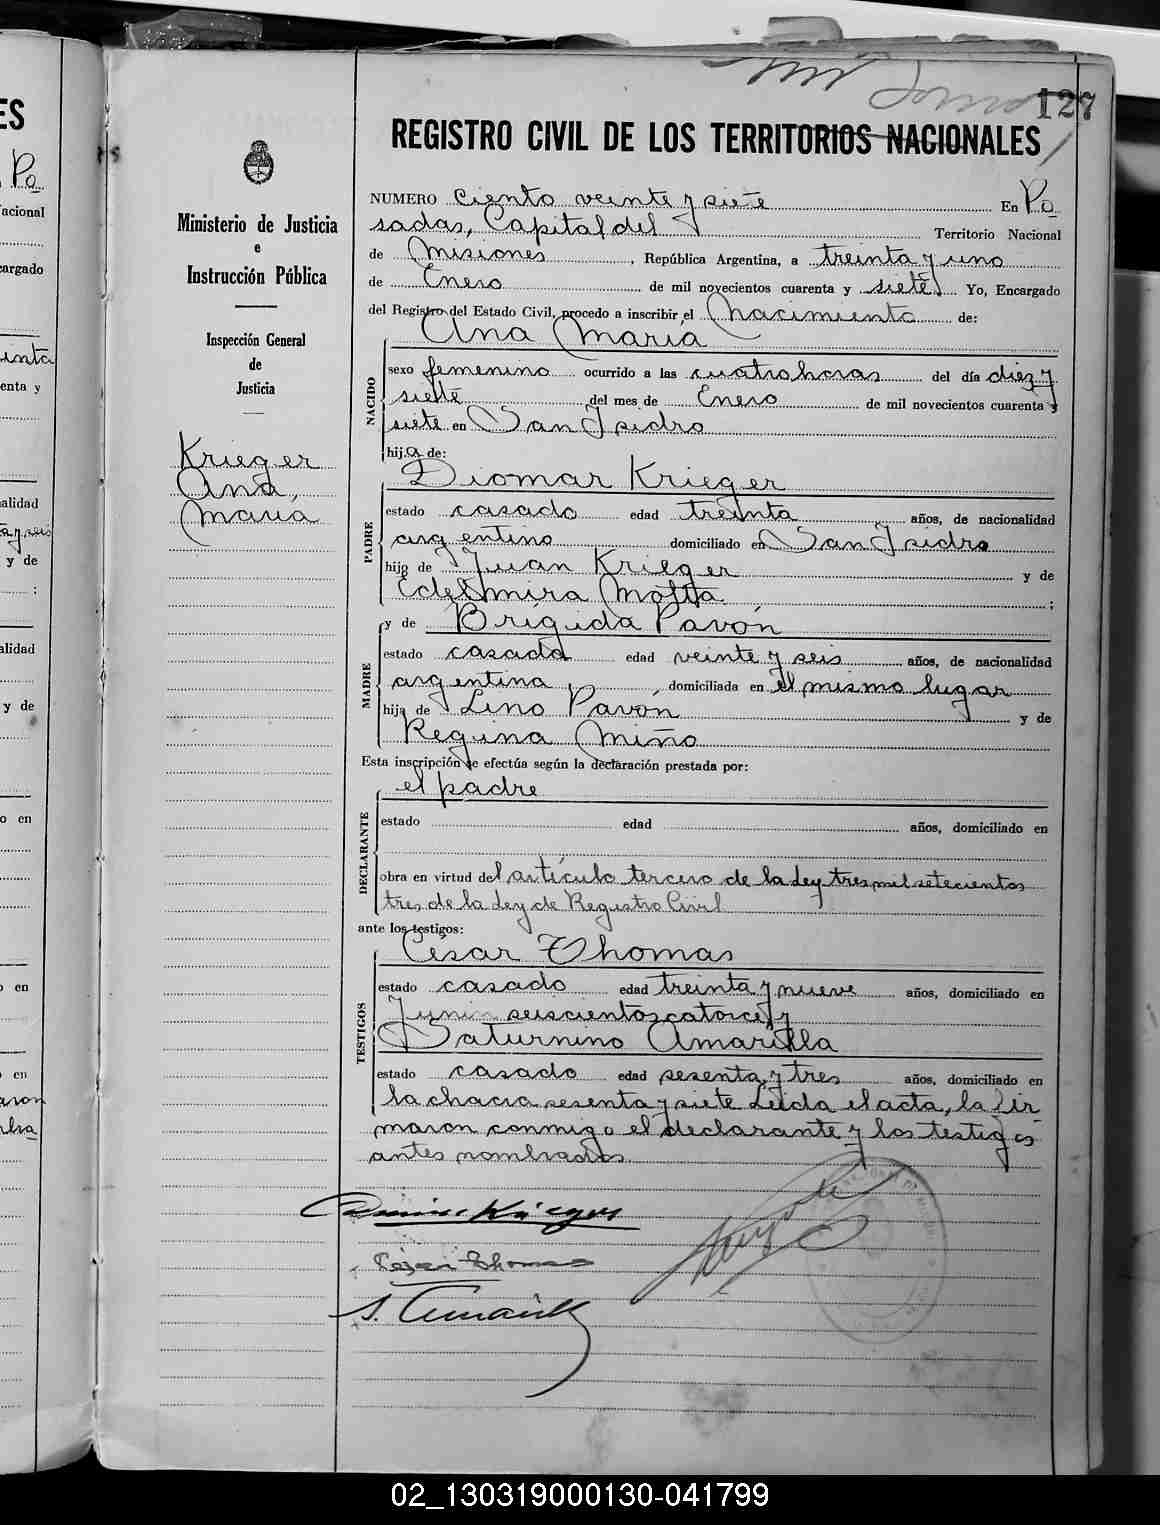 127
REGISTRO CIVIL DE LOS TERRITORIOS NACIONALES
Ministerio de Justicia
e
Instrucción Pública
Inspección General
de
Justicia
Krieger
Ana,
Maria
NUMERO Ciento veinte y siete En Po
sadas, Capital del Territorio Nacional
de Misiones, República Argentina, a treinta y uno
de Enero de mil novecientos cuarenta y siete Yo, Encargado
del Registro del Estado Civil, procedo a inscribir el Nacimiento de:
Ana Maria
NACIDO
sexo femenino ocurrido a las cuatro horas del día diez y
siete del mes de Enero de mil novecientos cuarenta y
siete en San Isidro
hija de:
Diomar Krieger
PADRE
estado casado edad treinta años, de nacionalidad
argentino domiciliado en San Isidro
hijo de Juan Krieger y de
Edelmira Motta ;
y de Brígida Pavón
MADRE
estado casada edad veinte y seis años, de nacionalidad
argentina, domiciliada en el mismo lugar
hija de Lino Pavón y de
Regina Miño
Esta inscripción se efectúa según la declaración prestada por:
el padre
DECLARANTE
estado edad años, domiciliado en
obra en virtud del artículo tercero de la Ley tres mil setecientos
tres de la Ley de Registro Civil
ante los testigos:
César Thomas
TESTIGOS
estado casado edad treinta y nueve años, domiciliado en
Junin seiscientos catorce y
Saturnino Amarilla
estado casado edad sesenta y tres años, domiciliado en
la chacra sesenta y siete Leida el acta, la fir
maron conmigo el declarante y los testigos
antes nombrados.
Krieger
César Thomas
S. Amarilla
02_130319000130-041799